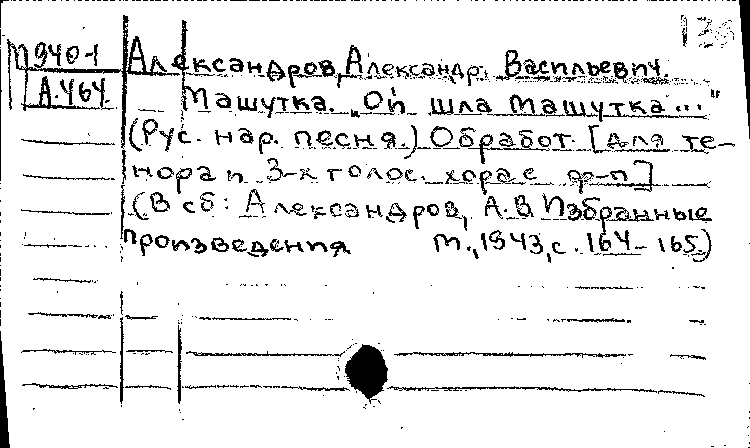 М940-1 Александров, Александр. Васильевич.
А.464. Машутка. „Ой шла Машутка..."
(Рус. нар. песня.) Обработ. [для те-
нора и 3-х голос. хора с ф-п]
(В сб: Александров, А.В. Избранные
произведения М., 1943, с. 164-165)